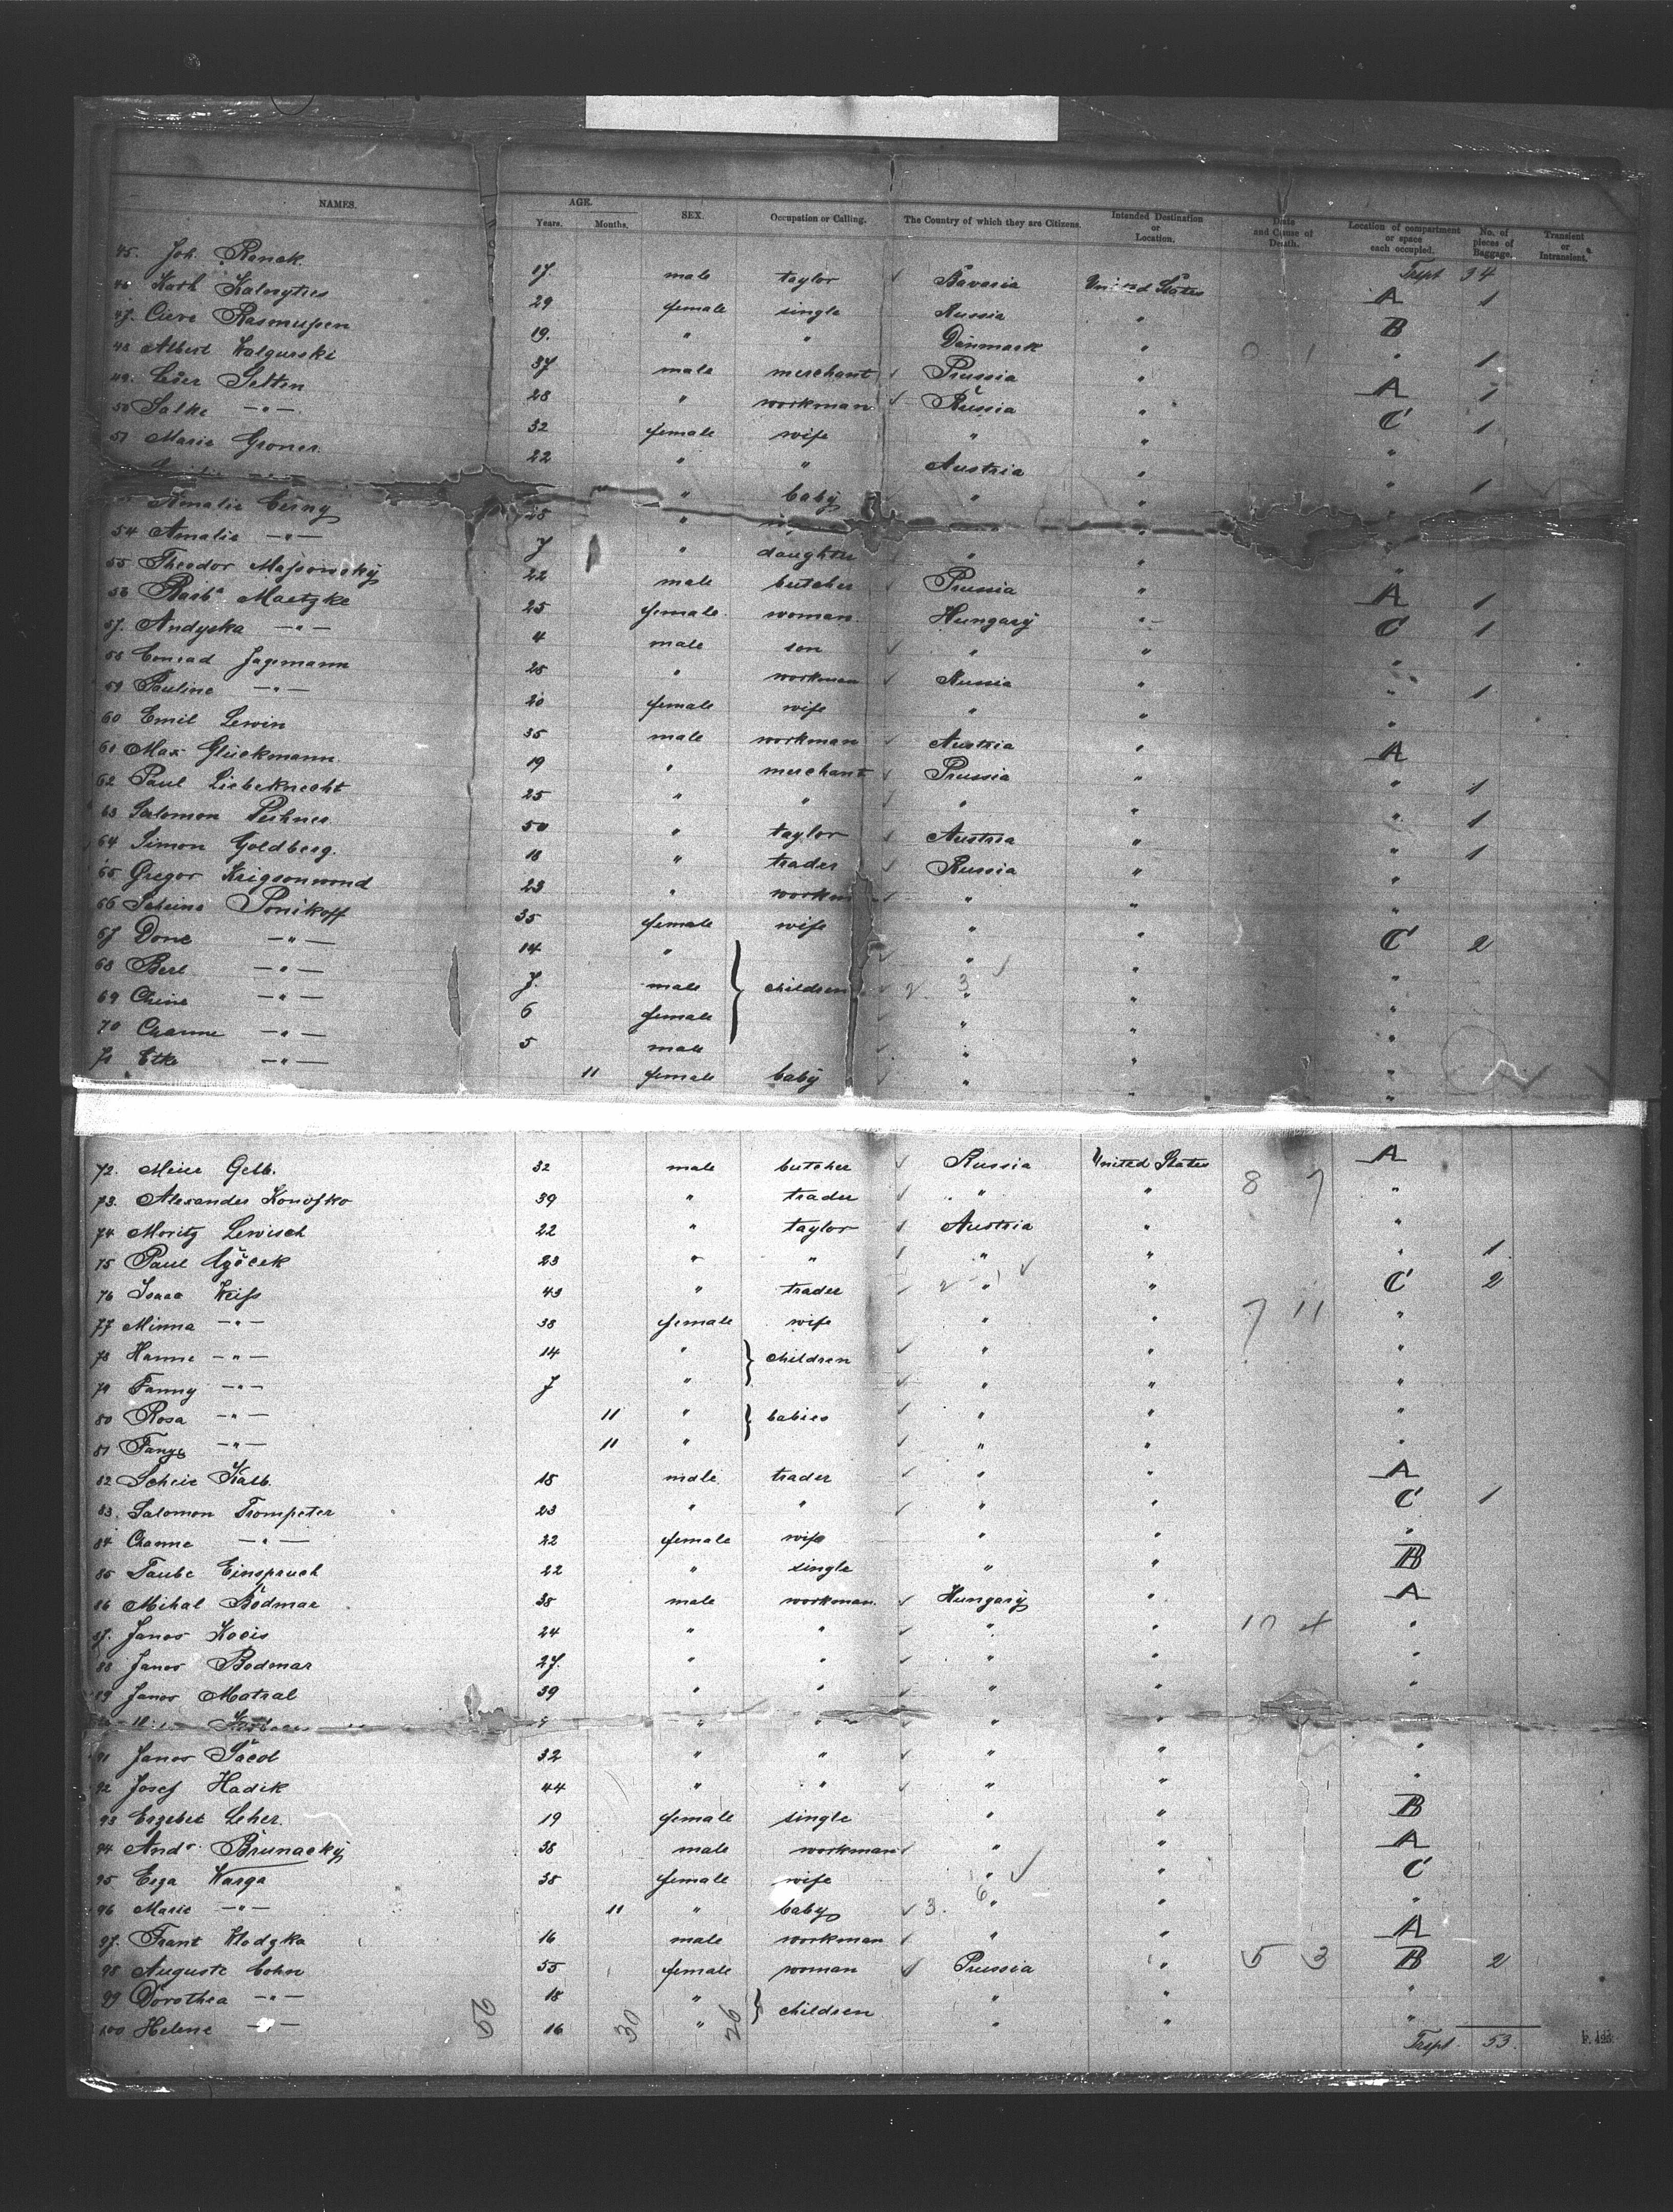 NAMES. AGE. Years. Months. SEX. Occupation or Calling. The Country of which they are Citizens. Intended Destination or Location. Date and Cause of Death. Location of compartment or space each occupied. No. of pieces of Baggage. Transient or Intransient.
Trspt 34
45. Joh. 17 male taylor Bavaria United States A 1
46 Kath 29 female single Russia " B
47. Rasmussen 19. " " Dänmark " " 1
48 Albert 37 male merchant Prussia " A 1
49. Leser 28 " workman Russia " C 1
50 Salke —"— 32 female wife " " "
51 Marie Groner 22 " " Austria " " 1
" baby " "
Amalie Cerny 28 "
54 Amalie —"— 7 " daughter " " "
55 Theodor Massowsky 22 male butcher Prussia " A 1
56 Barb. Maetzke 25 female woman Hungary " C 1
57. Andyska —"— 4 male son " " "
58 Conrad Jagemann 28 " workman Russia " " 1
59 Pauline —"— 20 female wife " " "
60 Emil Lewin 35 male workman Austria " A
61 Max Glückmann 19 " merchant Prussia " " 1
62 Paul Liebeknecht 25 " " " " " 1
63 Salomon 50 " taylor Austria " " 1
64 Simon Goldberg. 18 " trader Russia " "
65 Gregor Krigsonwond 23 " workm " " "
66 Scheine Ponikoff 35 female wife " " C 2
67 Done —"— 14 " " " "
68 Berl —"— 7. male children " " "
69 Chine —"— 6 female " " "
70 Channe —"— 5 male " " "
71 Etke —"— 11 female baby " " "
72. Meier Gelb. 32 male butcher Russia United States A
73. Alexander Konofko 39 " trader " " "
74 Moritz Lewisch 22 " taylor Austria " "
75 Paul 23 " " " " " 1
76 Isaac Weiss 43 " trader " " C 2
77 Minna —"— 38 female wife " " "
78 Hanne —"— 14 " children " " "
79 Fanny —"— 7 " " " "
80 Rosa —"— 11 " babies " " "
81 Fange —"— 11 " " " "
82 Scheie Kalb. 18 male trader " " A
83. Salomon Trompeter 23 " " " " C 1
84 Channe —"— 22 female wife " " "
85 Taube Einspruch 22 " single " " B
86 Mihal Bodmar 38 male workman. Hungary " A
87. Janos Kocis 24 " " " " "
88 Janos Bodmar 27. " " " " "
89 Janos Matral 39 " " " " "
" " " "
91 Janos Sacol 32 " " " " "
92 Josef Hadik 44 " " " " "
93 Erzebet Leher. 19 female single " " B
94 Andr. Brunacky 38 male workman " " A
95 Erza Warga 38 female wife " " C
96 Marie —"— 11 " baby " " "
97. Frant Klodzka 16 male workman " " A
98 Auguste Cohn 55 female woman Prussia " B 2
99 Dorothea —"— 18 " children " " "
100 Helene —"— 16 " " " "
Trspt. 53.